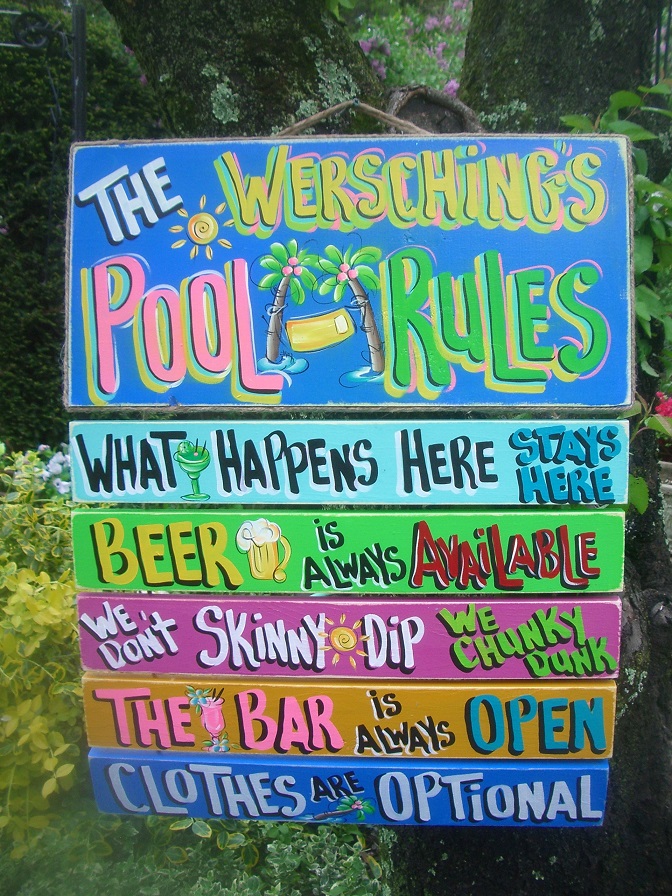 THE WERSCHING'S
POOL RULES
WHAT HAPPENS HERE STAYS HERE
BEER is ALWAYS AVAiLABLE
WE DON't SKiNNY DiP WE CHUNKY DUNK
THE BAR is ALWAYS OPEN
CLOTHES ARE OPTiONAL